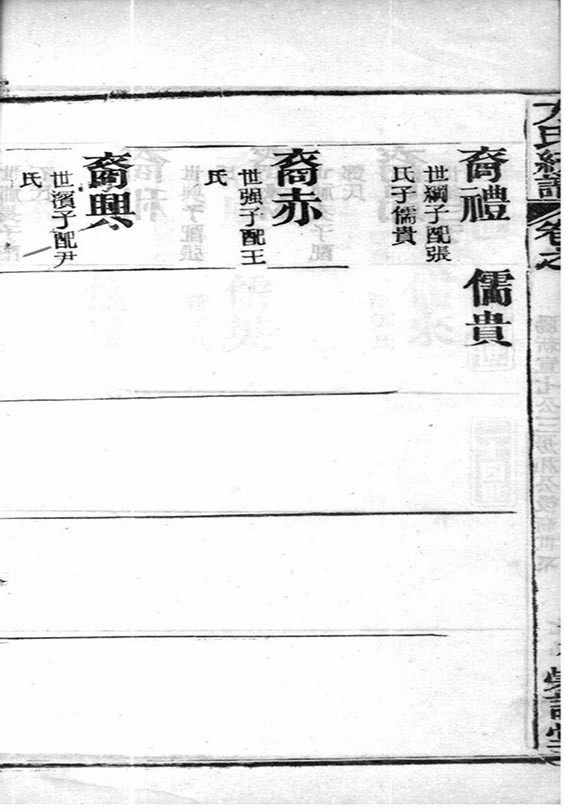 氏續譜
卷之
裔禮
世綱子配張
氏子儒貴
儒貴
裔赤
世强子配王
氏
裔興
世濱子配尹
氏